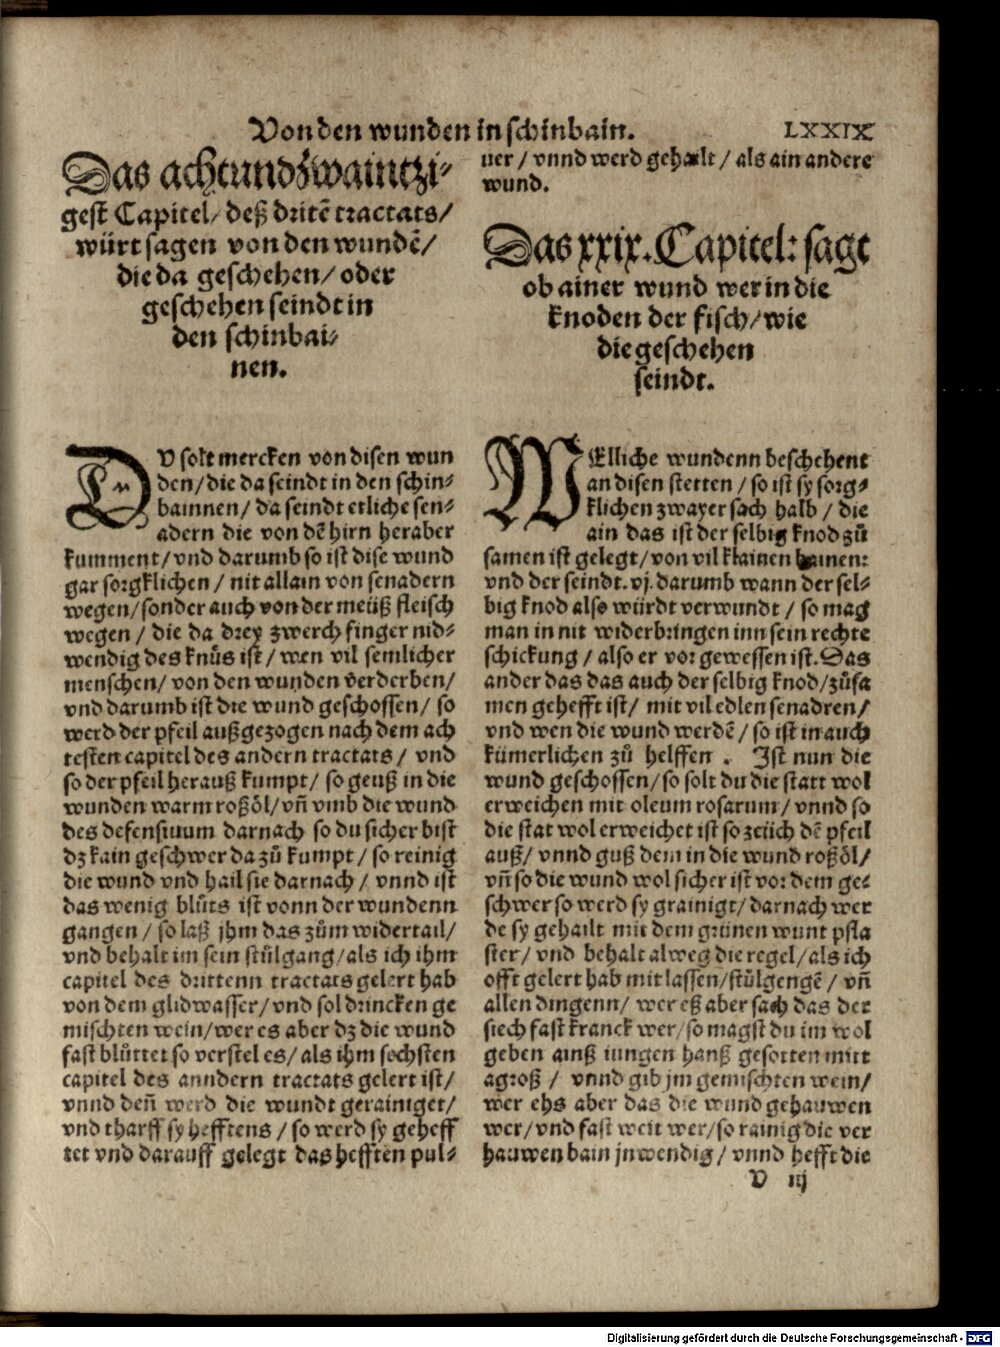 Von den wunden in schinbain.
LXXIX
Das achtundzwaintzi-
gest Capitel/ deß dritē tractats/
würt sagen von den wundē/
die da geschehen/ oder
geschehen seindt in
den schinbai-
nen.
DV solt mercken von disen wun
den/ die da seindt in den schin-
bainnen/ da seindt etliche sen-
adern die von dē hirn heraber
kumment/ vnd darumb so ist dise wund
gar sorgklichen/ nit allain von senadern
wegen/ sonder auch von der meüß fleisch
wegen/ die da drey zwerch finger nid-
wendig des knůs ist/ wen vil semlicher
menschen/ von den wunden verderben/
vnd darumb ist die wund geschossen/ so
werd der pfeil außgezogen nach dem ach
testen capitel des andern tractats/ vnd
so der pfeil herauß kumpt/ so geuß in die
wunden warm roßöl/ vñ vmb die wund
des defensiuum darnach so du sicher bist
dz kain geschwer da zů kumpt/ so reinig
die wund vnd hail sie darnach/ vnnd ist
das wenig blůts ist vonn der wundenn
gangen/ so laß jhm das zům widertail/
vnd behalt im sein stůlgang/ als ich ihm
capitel des drittenn tractats gelert hab
von dem glidwasser/ vnd sol drincken ge
mischten wein/ wer es aber dz die wund
fast blůttet so verstel es/ als ihm sechsten
capitel des anndern tractats gelert ist/
vnnd deñ werd die wundt gerainiget/
vnd tharff sy hefftens/ so werd sy geheff
tet vnd darauff gelegt das hefften pul-
uer/ vnnd werd gehailt/ als ain andere
wund.
Das xxix. Capitel: sagt
ob ainer wund wer in die
knoden der fisch/ wie
die geschehen
seindt.
WElliche wundenn beschehent
an disen stetten/ so ist sy sorg-
klichen zwayer sach halb/ die
ain das ist der selbig knod zů
samen ist gelegt/ von vil klainen bainen:
vnd der seindt. vj. darumb wann der sel-
big knod also würdt verwundt/ so mag
man in nit widerbringen inn sein rechte
schickung/ also er vor gewessen ist. Das
ander das das auch der selbig knod/ zůsa
men gehefft ist/ mit vil edlen senadren/
vnd wen die wund werdē/ so ist in auch
kümerlichen zů helffen. Ist nun die
wund geschossen/ so solt du die statt wol
erweichen mit oleum rosarum/ vnnd so
die stat wol erweichet ist so zeüch dē pfeil
auß/ vnnd guß dem in die wund roßöl/
vñ so die wund wol sicher ist vor dem ge-
schwer so werd sy grainigt/ darnach wer
de sy gehailt mit dem grünen wunt pfla
ster/ vnd behalt alweg die regel/ als ich
offt gelert hab mit lassen/ stůlgengē/ vñ
allen dingenn/ wer eß aber sach das der
siech fast kranck wer/ so magst du im wol
geben ainß iungen hanß gesotten mitt
agroß/ vnnd gib jm gemischten wein/
wer ehs aber das die wund gehauwen
wer/ vnd fast weit wer/ so rainig die ver
hauwen bain jnwendig/ vnnd hefft die
V iij
Digitalisierung gefördert durch die Deutsche Forschungsgemeinschaft - DFG